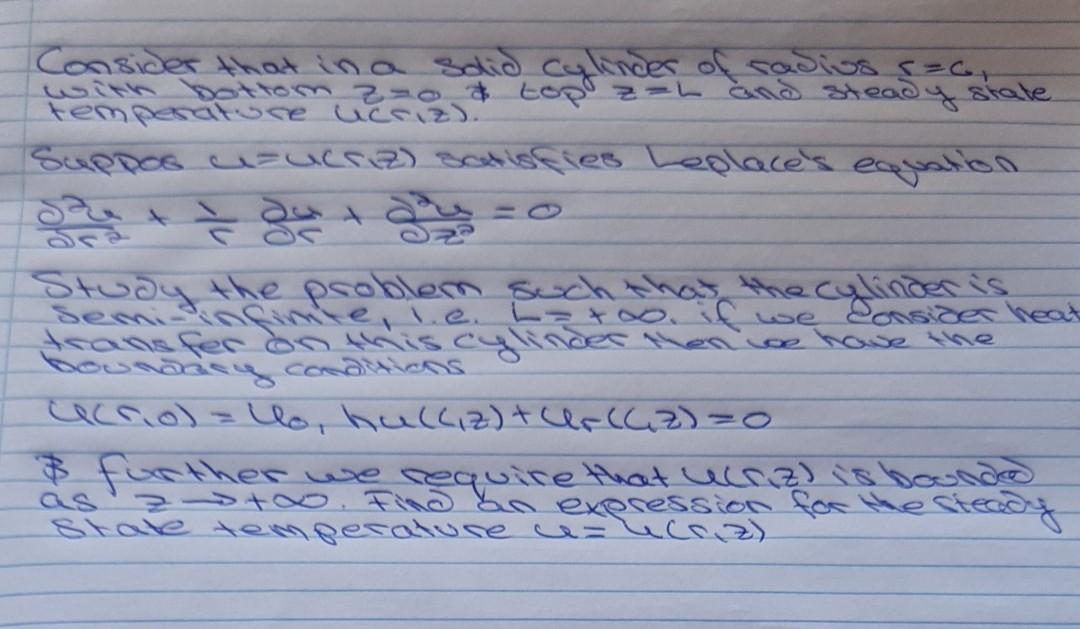 Consider that in a solid cylinder of radius r=c,
with bottom z=0 & top z=L and steady state
temperature u(r,z).
Suppos u=u(r,z) satisfies Leplace's equation
∂²u/∂r² + 1/r ∂u/∂r + ∂²u/∂z² = 0
Study the problem such that the cylinder is
semi-infinite, i.e. L=+∞. if we consider heat
transfer on this cylinder then we have the
boundary conditions
u(r,0) = u₀, hu(c,z)+uᵣ(c,z)=0
& further we require that u(r,z) is bounded
as z→+∞. Find an expression for the steady
state temperature u=u(r,z)